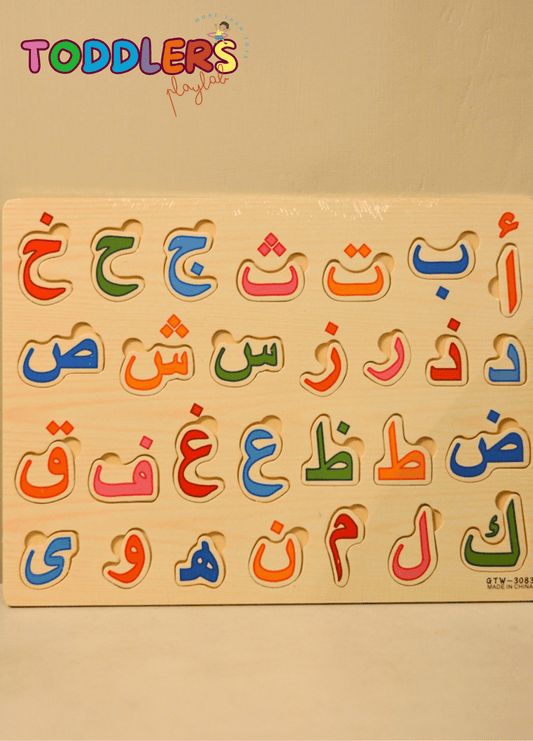 TODDLERS
playlab
أ ب ت ث ج ح خ
د ذ ر ز س ش ص
ض ط ظ ع غ ف ق
ك ل م ن ه و ى
GTW-3083
MADE IN CHINA